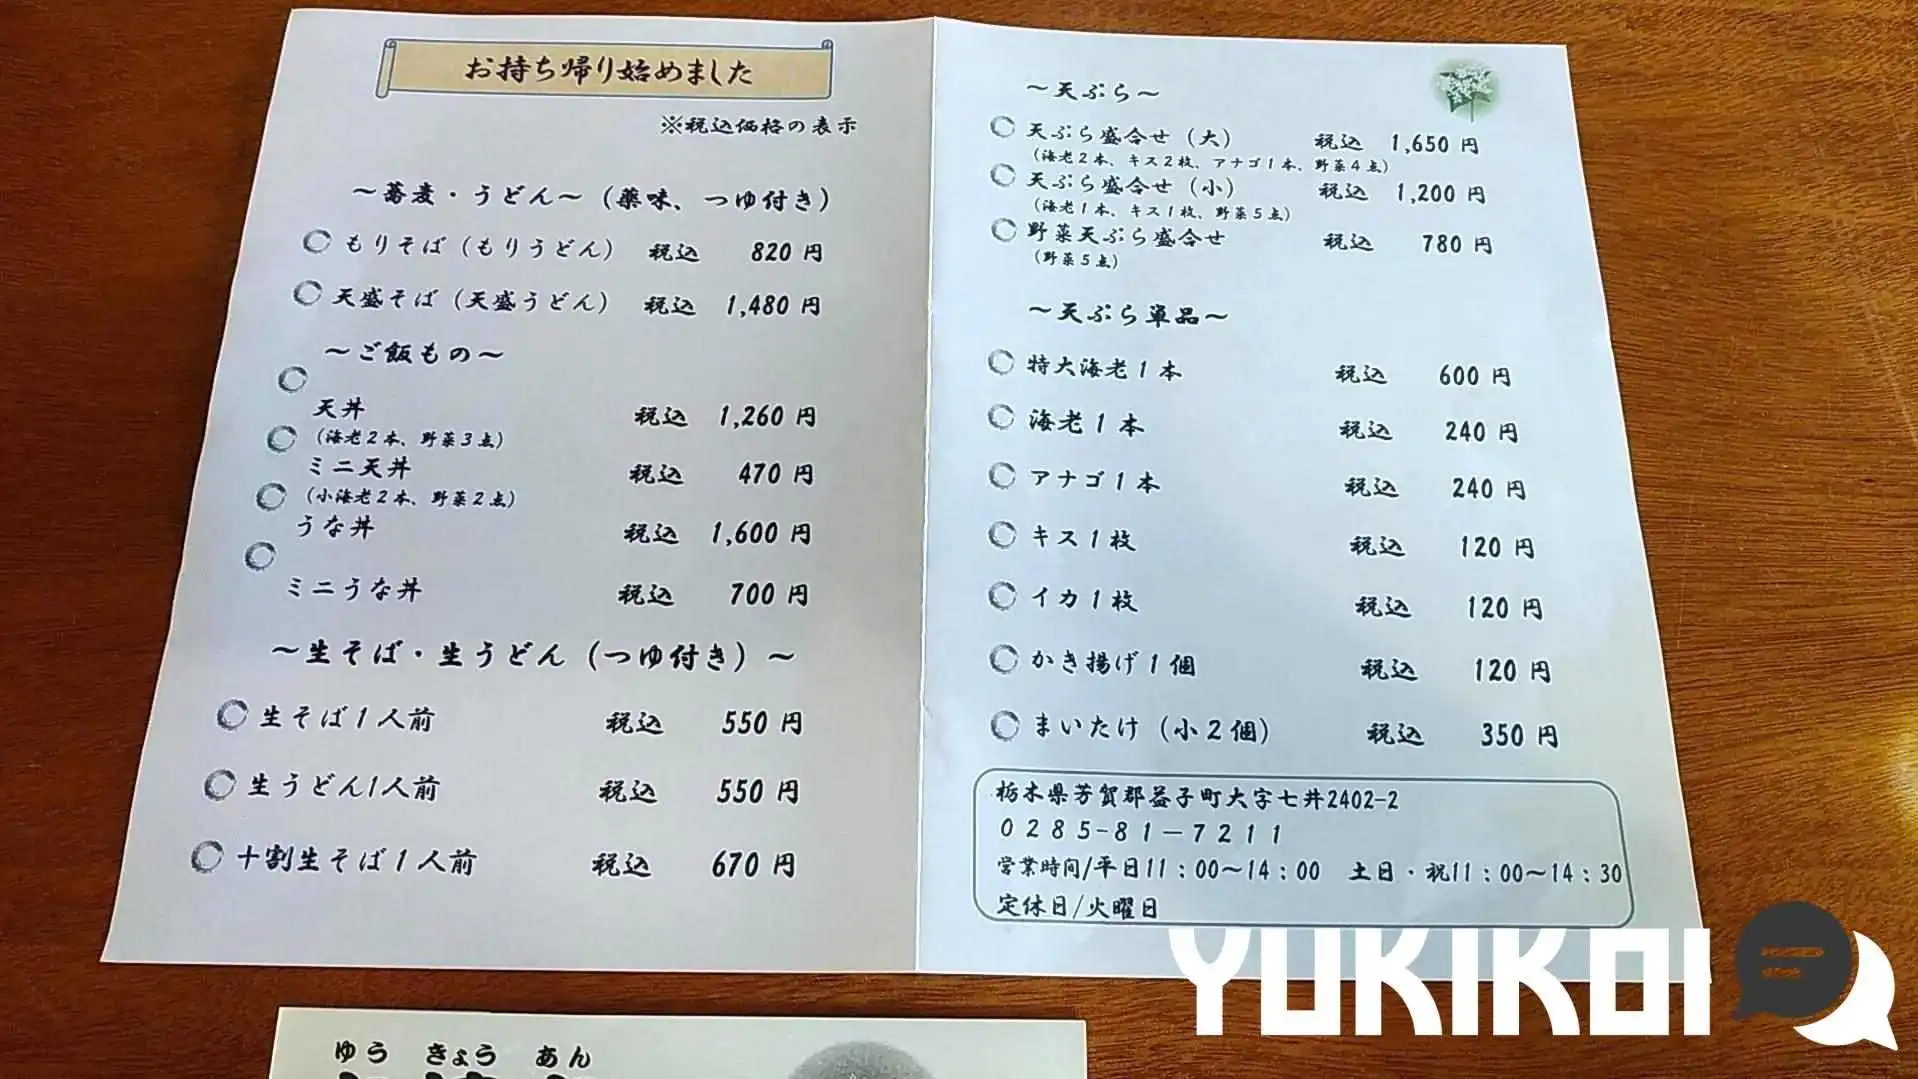 お持ち帰り始めました
※税込価格の表示
～蕎麦・うどん～（薬味、つゆ付き）
もりそば（もりうどん） 税込 820 円
天盛そば（天盛うどん） 税込 1,480 円
～ご飯もの～
天丼 税込 1,260 円
（海老２本、野菜３点）
ミニ天丼 税込 470 円
（小海老２本、野菜２点）
うな丼 税込 1,600 円
ミニうな丼 税込 700 円
～生そば・生うどん（つゆ付き）～
生そば１人前 税込 550 円
生うどん1人前 税込 550 円
十割生そば１人前 税込 670 円
～天ぷら～
天ぷら盛合せ（大） 税込 1,650 円
（海老２本、キス２枚、アナゴ１本、野菜４点）
天ぷら盛合せ（小） 税込 1,200 円
（海老１本、キス１枚、野菜５点）
野菜天ぷら盛合せ 税込 780 円
（野菜５点）
～天ぷら単品～
特大海老１本 税込 600 円
海老１本 税込 240 円
アナゴ１本 税込 240 円
キス１枚 税込 120 円
イカ１枚 税込 120 円
かき揚げ１個 税込 120 円
まいたけ（小２個） 税込 350 円
栃木県芳賀郡益子町大字七井2402-2
０２８５-８１－７２１１
営業時間/平日11：00～14：00 土日・祝11：00～14：30
定休日/火曜日
ゆう きょう あん
YUKIKOI